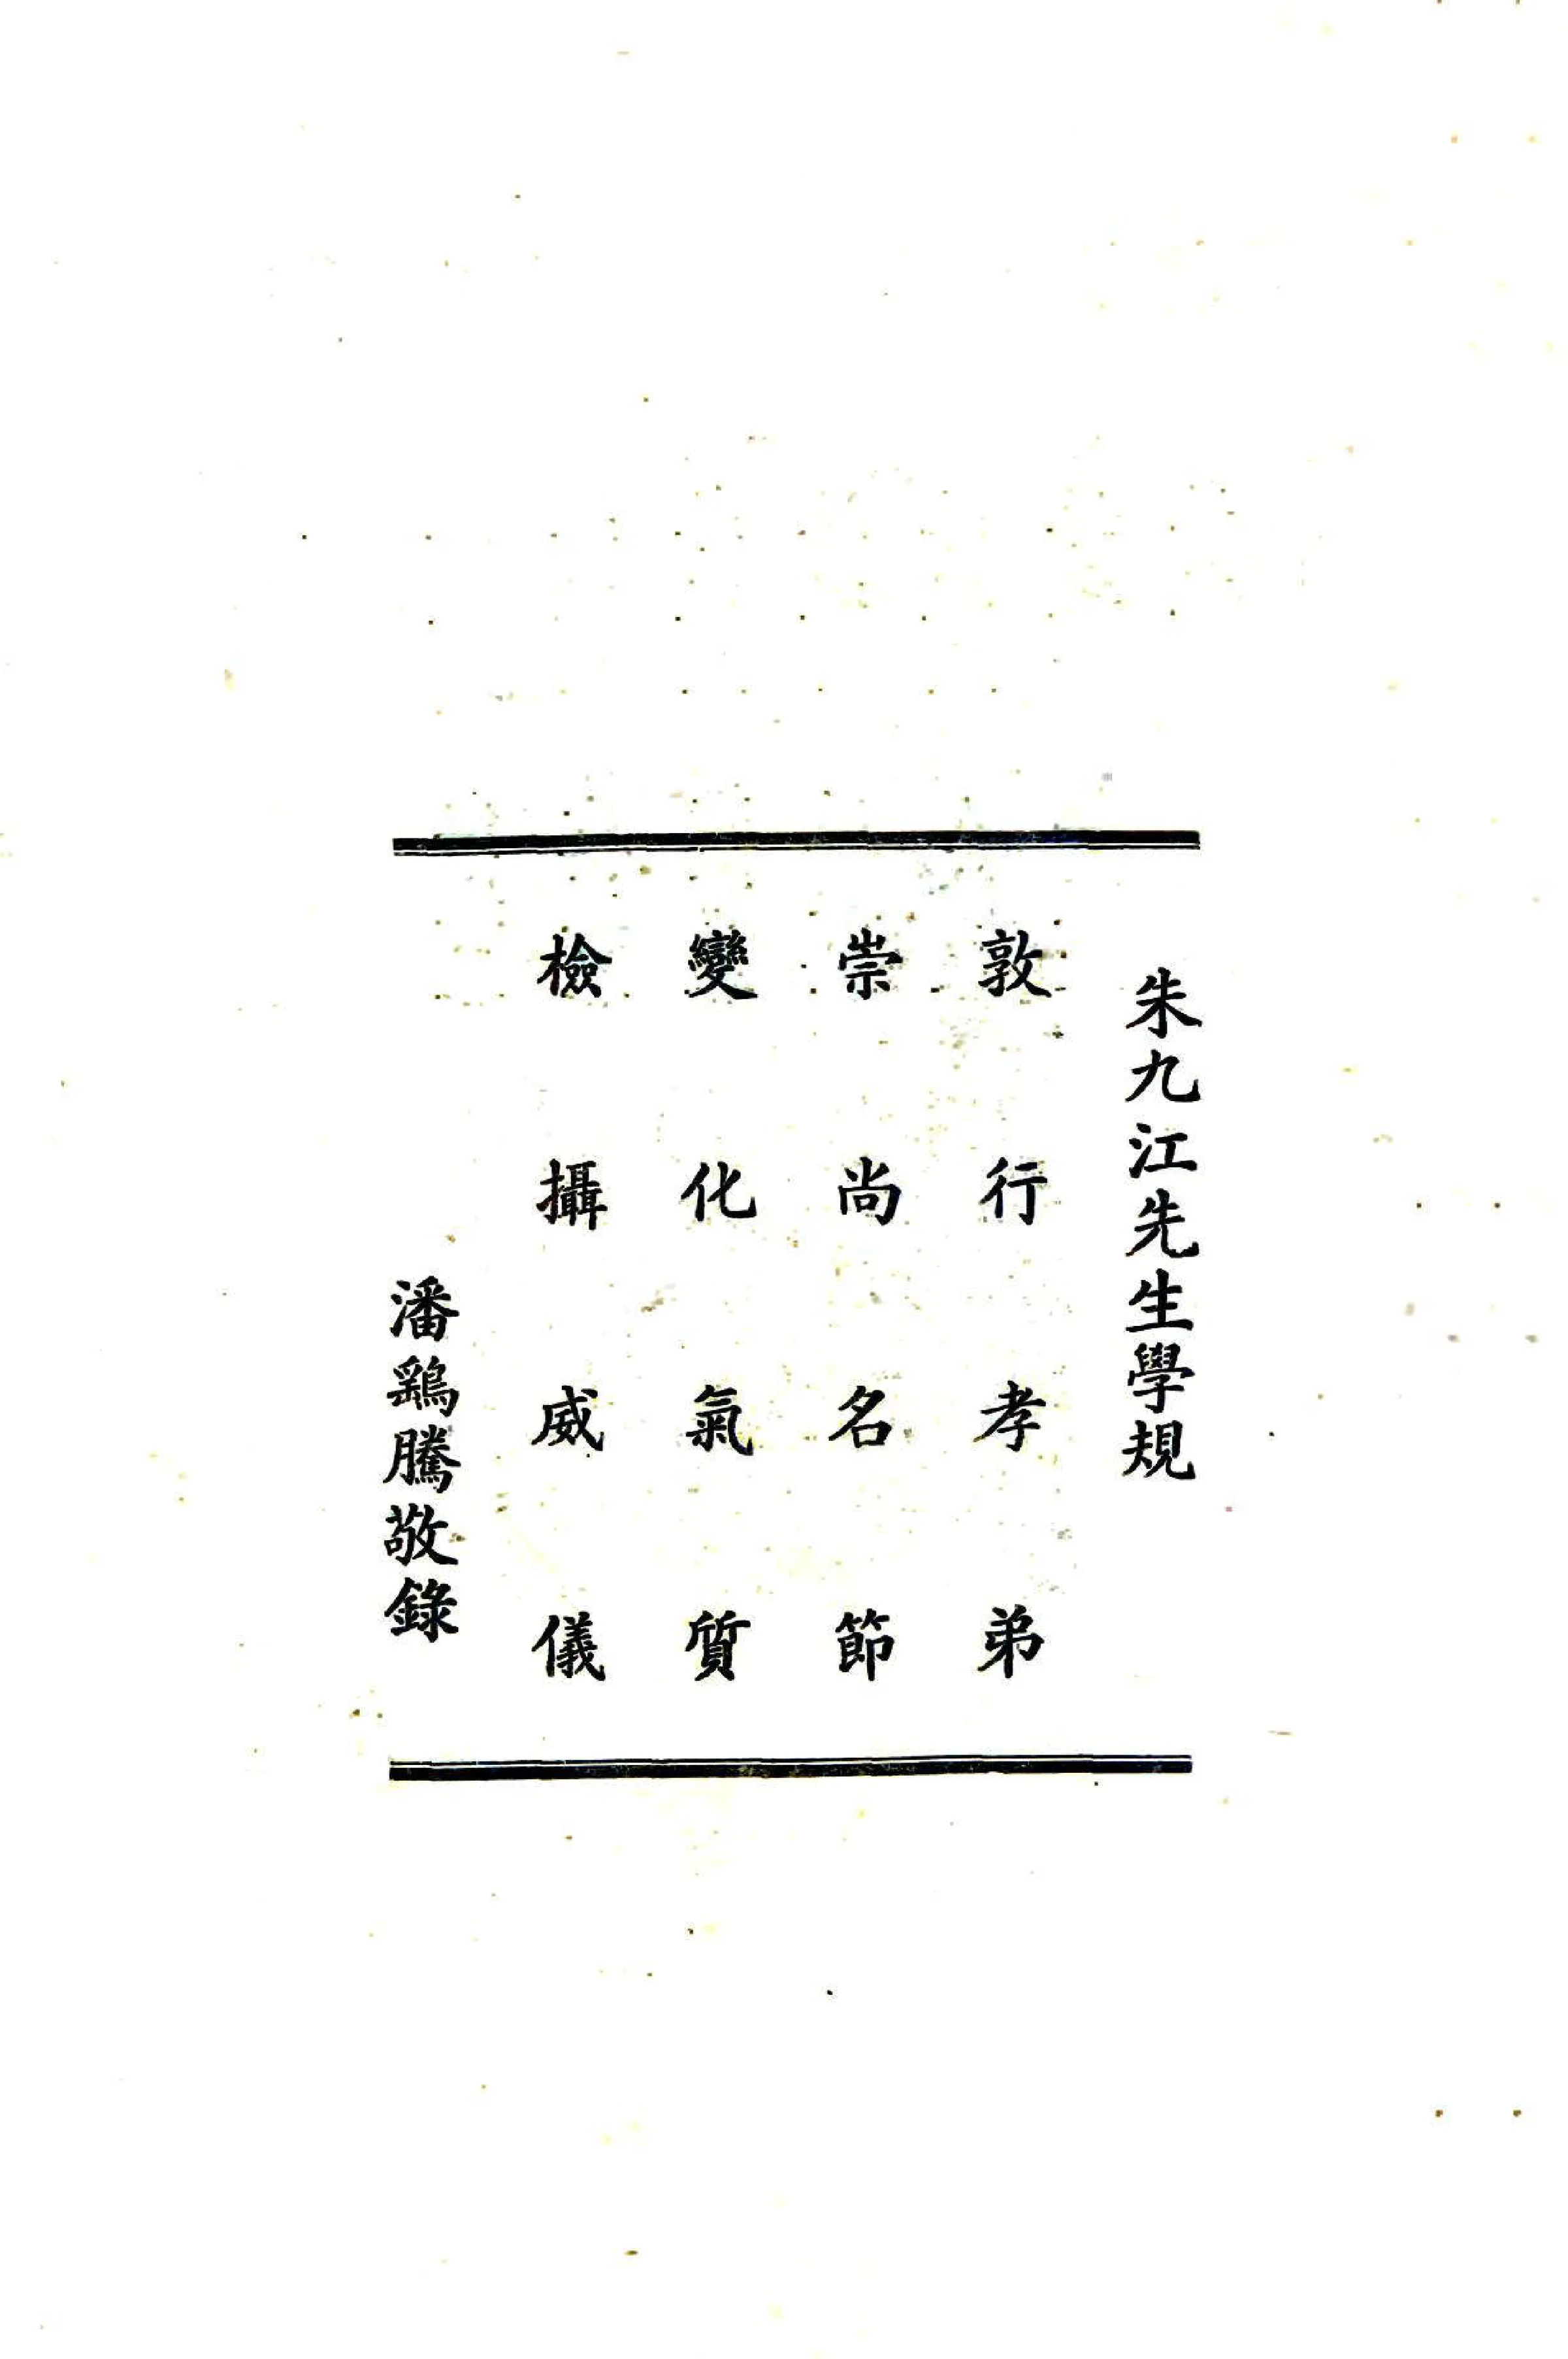 朱九江先生學規
敦行孝弟
崇尚名節
變化氣質
檢攝威儀
潘騰敬錄